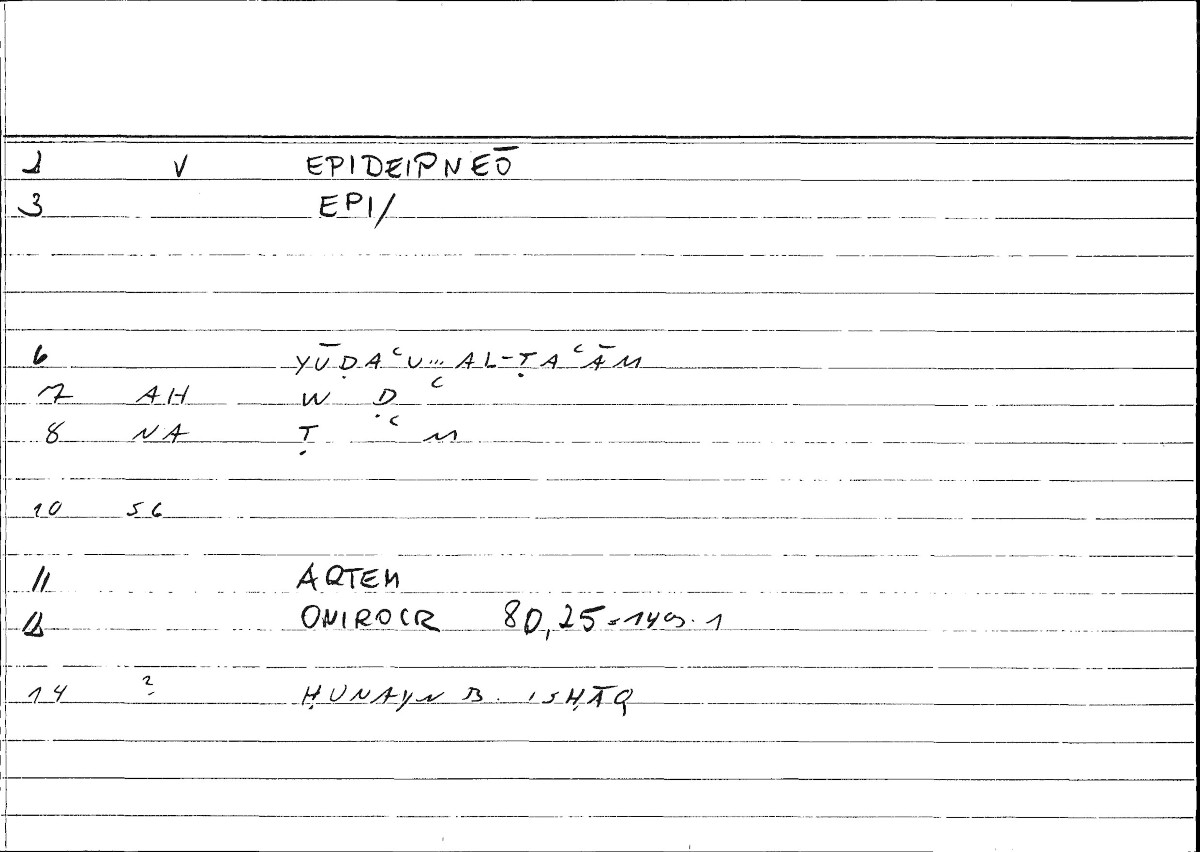 1 V EPIDEIPNEŌ
3 EPI/
6 YŪḌAʿU... AL-ṬAʿĀM
7 AH W Ḍ ʿ
8 NA Ṭ ʿ M
10 56
11 ARTEM
12 ONIROCR 80,25 = 149. 1
14 ? ḤUNAYN B. ISḤĀQ